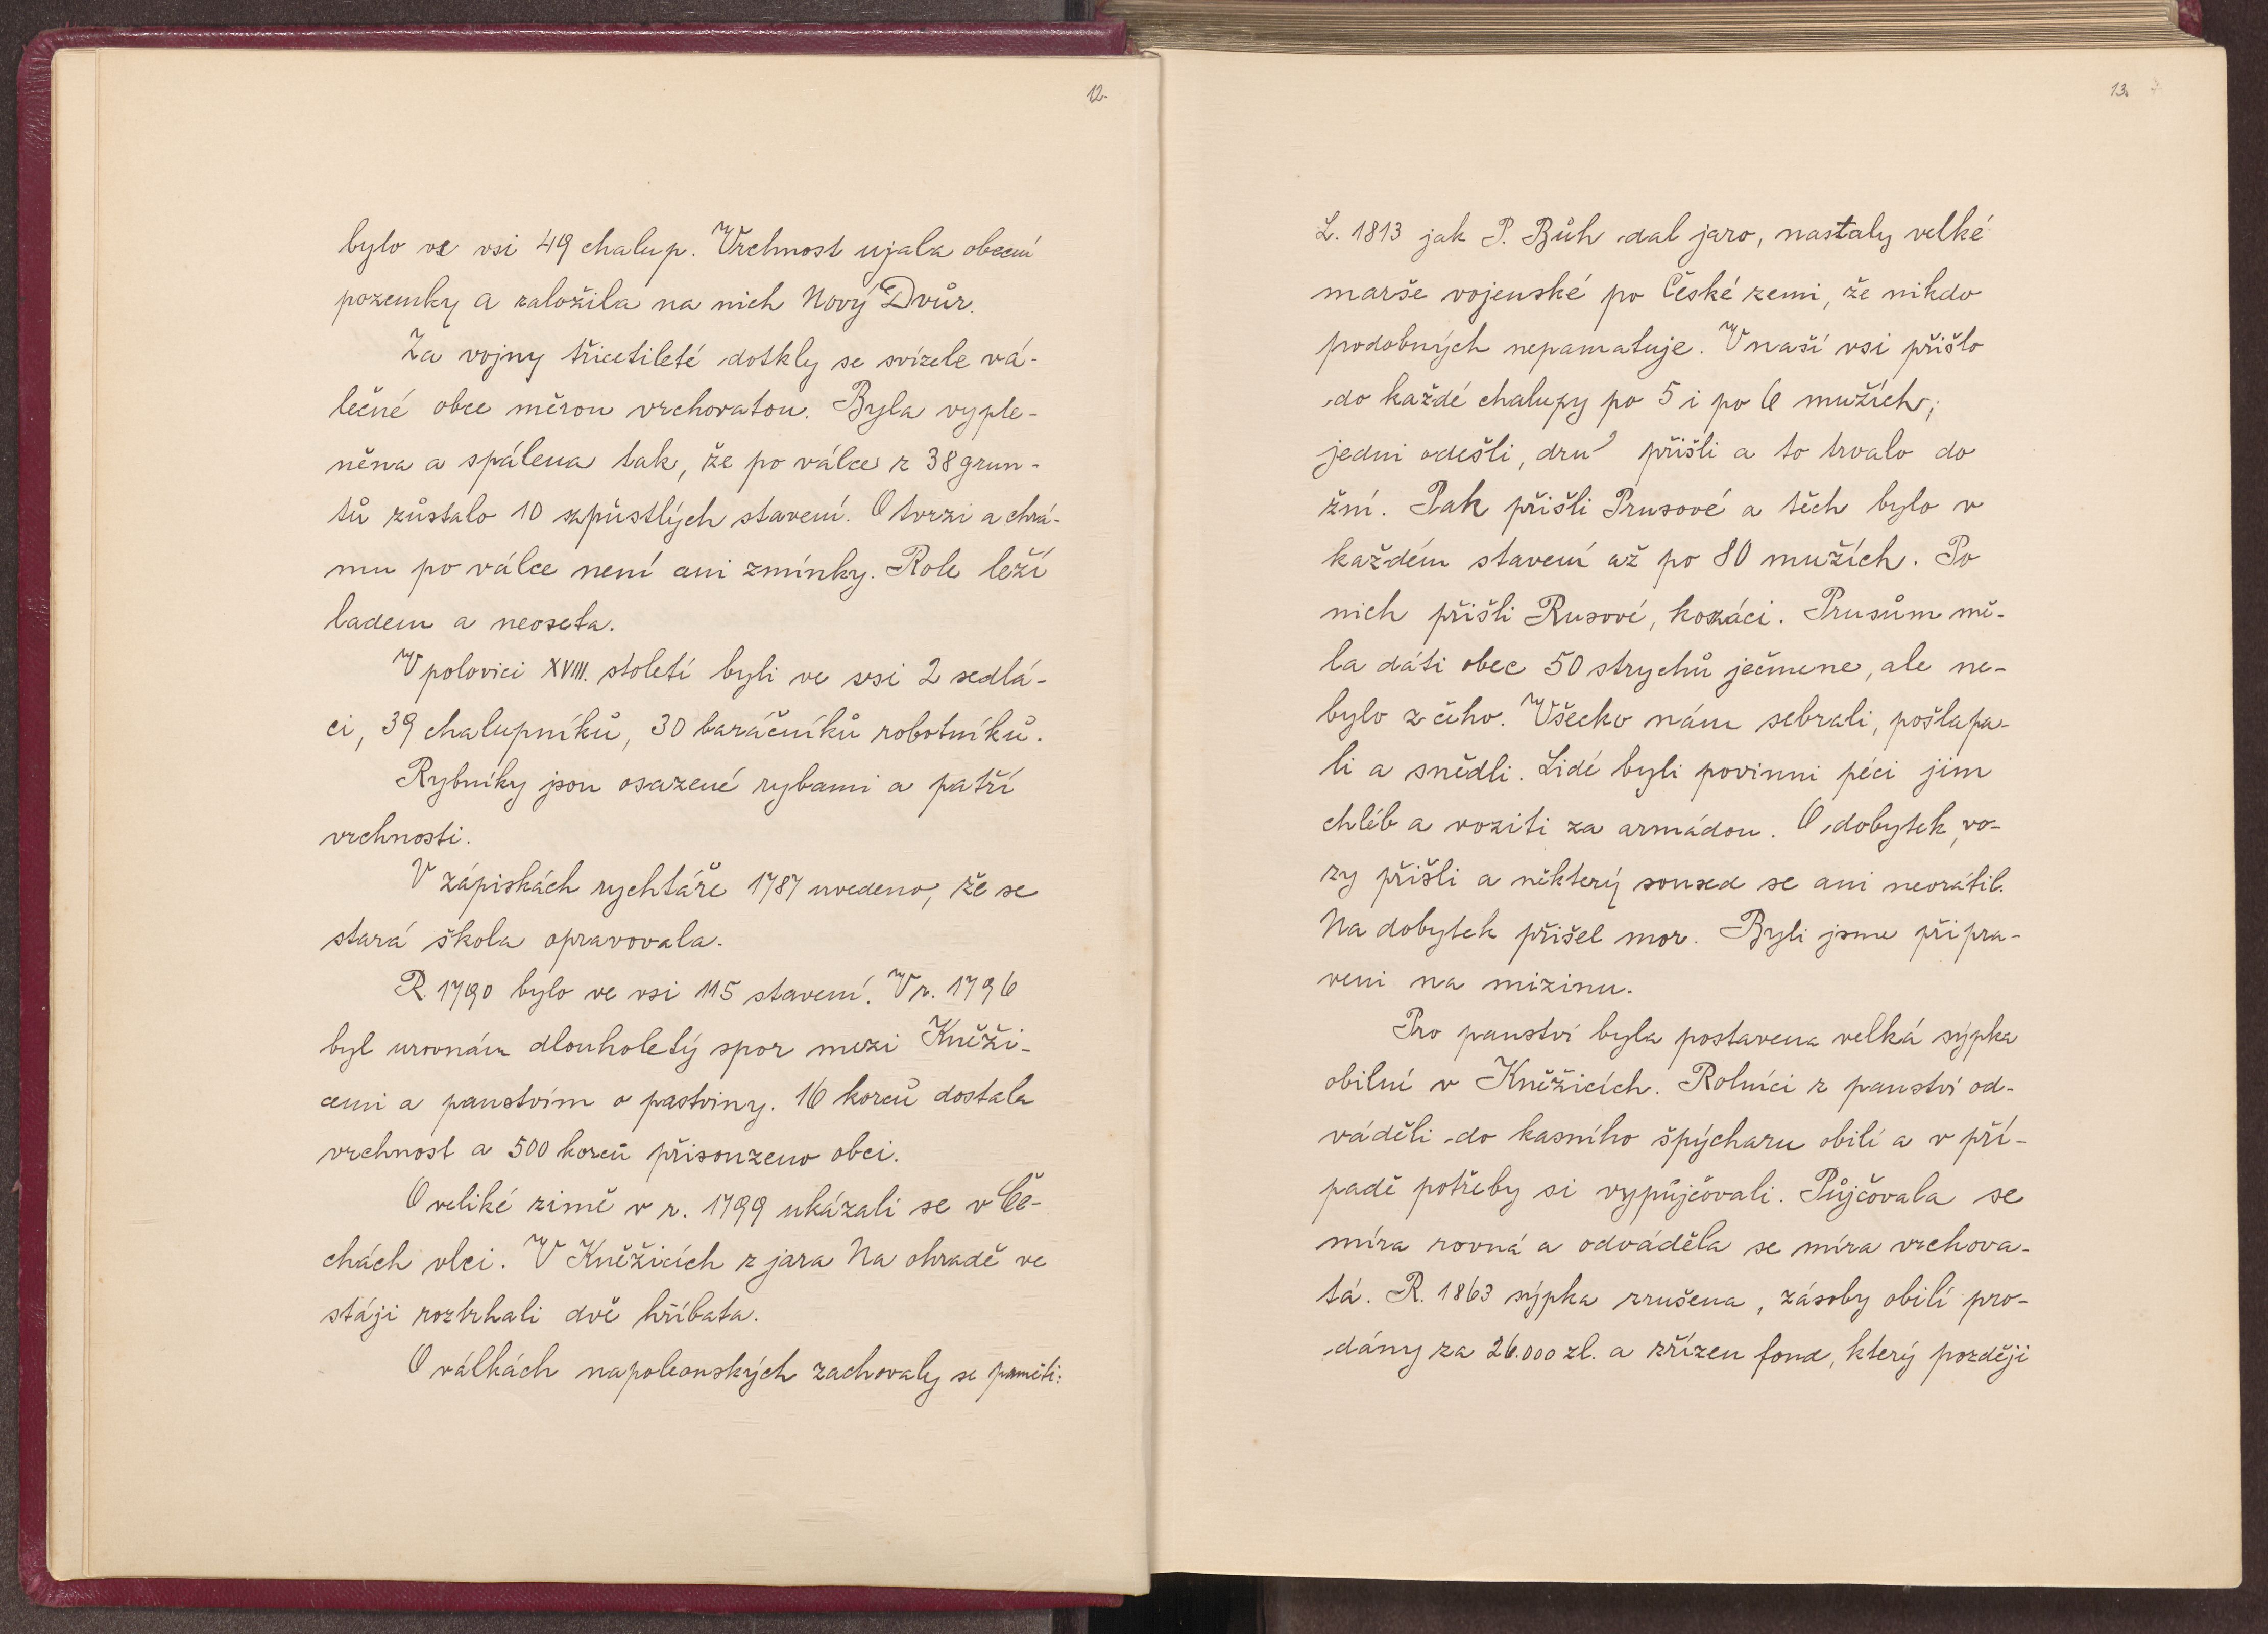 12.
bylo ve vsi 49 chalup. Vrchnost ujala obecní
pozemky a založila na nich Nový Dvůr.
Za vojny třicetileté dotkly se svízele vá-
lečné obce měrou vrchovatou. Byla vyple-
něna a spálena tak, že po válce z 38 grun-
tů zůstalo 10 zpustlých stavení. O tvrzi a chrá-
mu po válce není ani zmínky. Role leží
ladem a neoseta.
V polovici XVIII. století byli ve vsi 2 sedlá-
ci, 39 chalupníků, 30 baráčníků robotníků.
Rybníky jsou osazené rybami a patří
vrchnosti.
V zápiskách rychtáře 1787 uvedeno, že se
stará škola opravovala.
R. 1790 bylo ve vsi 115 stavení. V r. 1796
byl urovnán dlouholetý spor mezi Kněži-
cemi a panstvím o pastviny. 16 korců dostala
vrchnost a 500 korců přisouzeno obci.
O veliké zimě v r. 1799 ukázali se v Če-
chách vlci. V Kněžicích z jara Na ohradě ve
stáji roztrhali dvě hříbata.
O válkách napoleonských zachovaly se paměti:
13.
L. 1813 jak P. Bůh dal jaro, nastaly velké
marše vojenské po České zemi, že nikdo
podobných nepamatuje. V naší vsi přišlo
do každé chalupy po 5 i po 6 mužích;
jedni odešli, dru přišli a to trvalo do
žní. Pak přišli Prusové a těch bylo v
každém stavení až po 80 mužích. Po
nich přišli Rusové, kozáci. Prusům mě-
la dáti obec 50 strychů ječmene, ale ne-
bylo z čeho. Všecko nám sebrali, pošlapa-
li a snědli. Lidé byli povinni péci jim
chléb a voziti za armádou. O dobytek, vo-
zy přišli a některý soused se ani nevrátil.
Na dobytek přišel mor. Byli jsme připra-
veni na mizinu.
Pro panství byla postavena velká sýpka
obilní v Kněžicích. Rolníci z panství od-
váděli do kasního špýcharu obilí a v pří-
padě potřeby si vypůjčovali. Půjčovala se
míra rovná a odváděla se míra vrchova-
tá. R. 1863 sýpka zrušena, zásoby obilí pro-
dány za 26.000 zl. a zřízen fond, který později